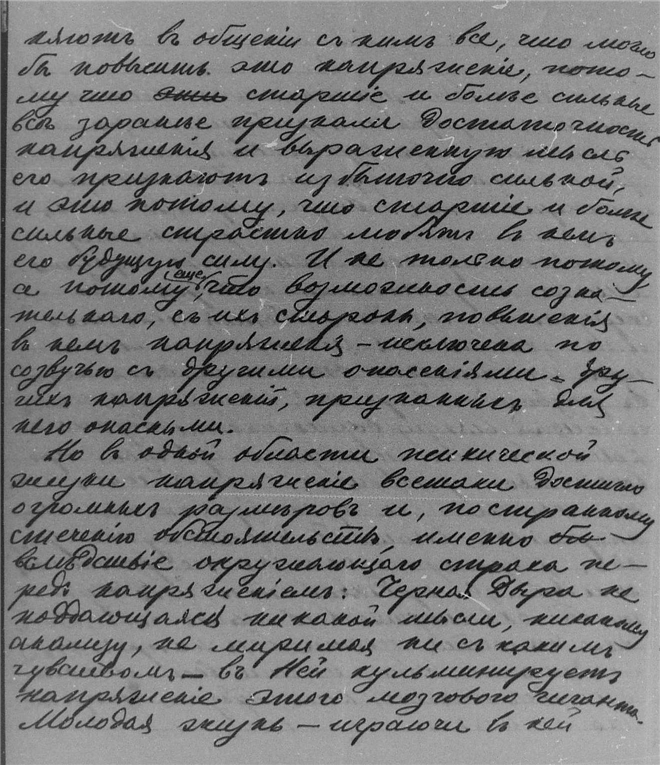 няютъ въ общеніи съ нимъ все, что могло
бы повысить это напряженіе, пото-
му что эти старшіе и болѣе сильные
всѣ заранѣе признали достаточность
напряженія и выраженную мысль
его признаютъ избыточно сильной,
и это потому, что старшіе и болѣе
сильные страстно любятъ въ немъ
его будущую силу. И не только потому
а потому еще, что возможность созна-
тельнаго, съ ихъ стороны, повышенія
въ немъ напряженія – исключена по
созвучью съ другими опасеніями – дру-
гихъ напряженій, признанныхъ для
него опасными.
Но въ одной области психической
жизни напряженіе всетаки достигло
огромныхъ размѣровъ и, по странному
стеченію обстоятельствъ, именно
вслѣдствіе окружающаго страха пе-
редъ напряженіемъ: Черная Дыра не
поддающаяся никакой мысли, никакому
анализу, не миримая ни съ какимъ
чувствомъ – въ Ней кульминируетъ
напряженіе этого мозгового гиганта.
Молодая жизнь – играючи въ ней